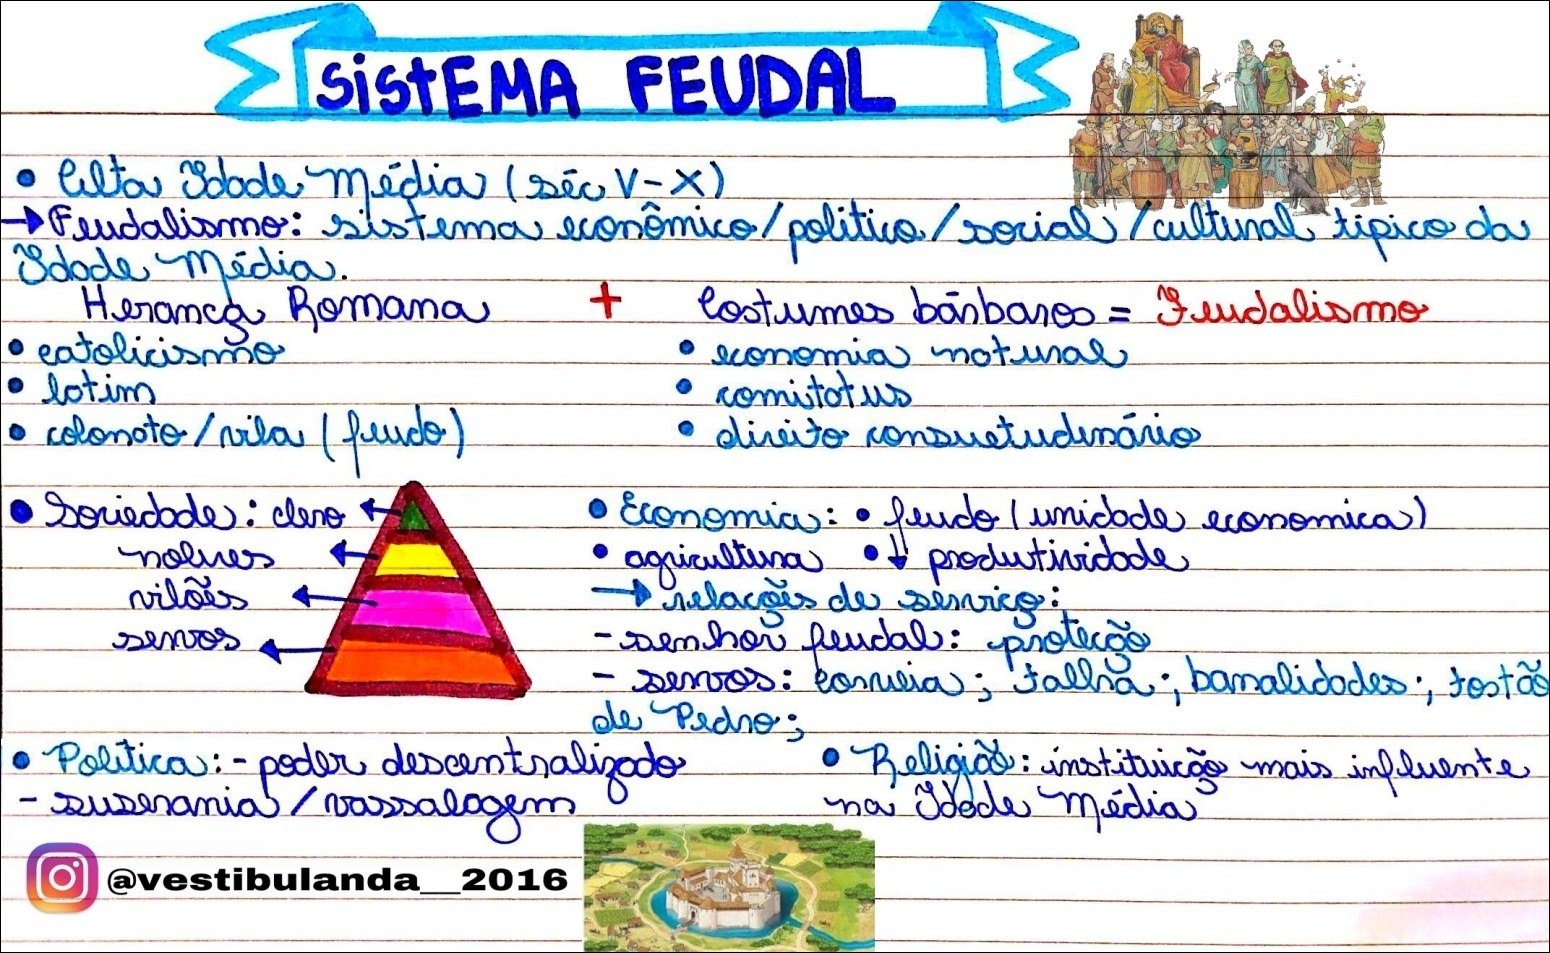 SiStEMA FEUDAL
• Alta Idade Média (séc V-X)
→ Feudalismo: sistema econômico/político/social/cultural típico da
Idade Média.
Herança Romana + Costumes bárbaros = Feudalismo
• catolicismo • economia natural
• latim • comitatus
• colonato/vila (feudo) • direito consuetudinário
• Sociedade: clero
nobres
vilões
servos
• Economia: • feudo (unidade economica)
• agricultura • ↓ produtividade
→ relações de serviço:
- senhor feudal: proteção
- servos: Corveia; talha; banalidades; tostão
de Pedro;
• Política: - poder descentralizado
- suserania/vassalagem
• Religião: instituição mais influente
na Idade Média
@vestibulanda__2016